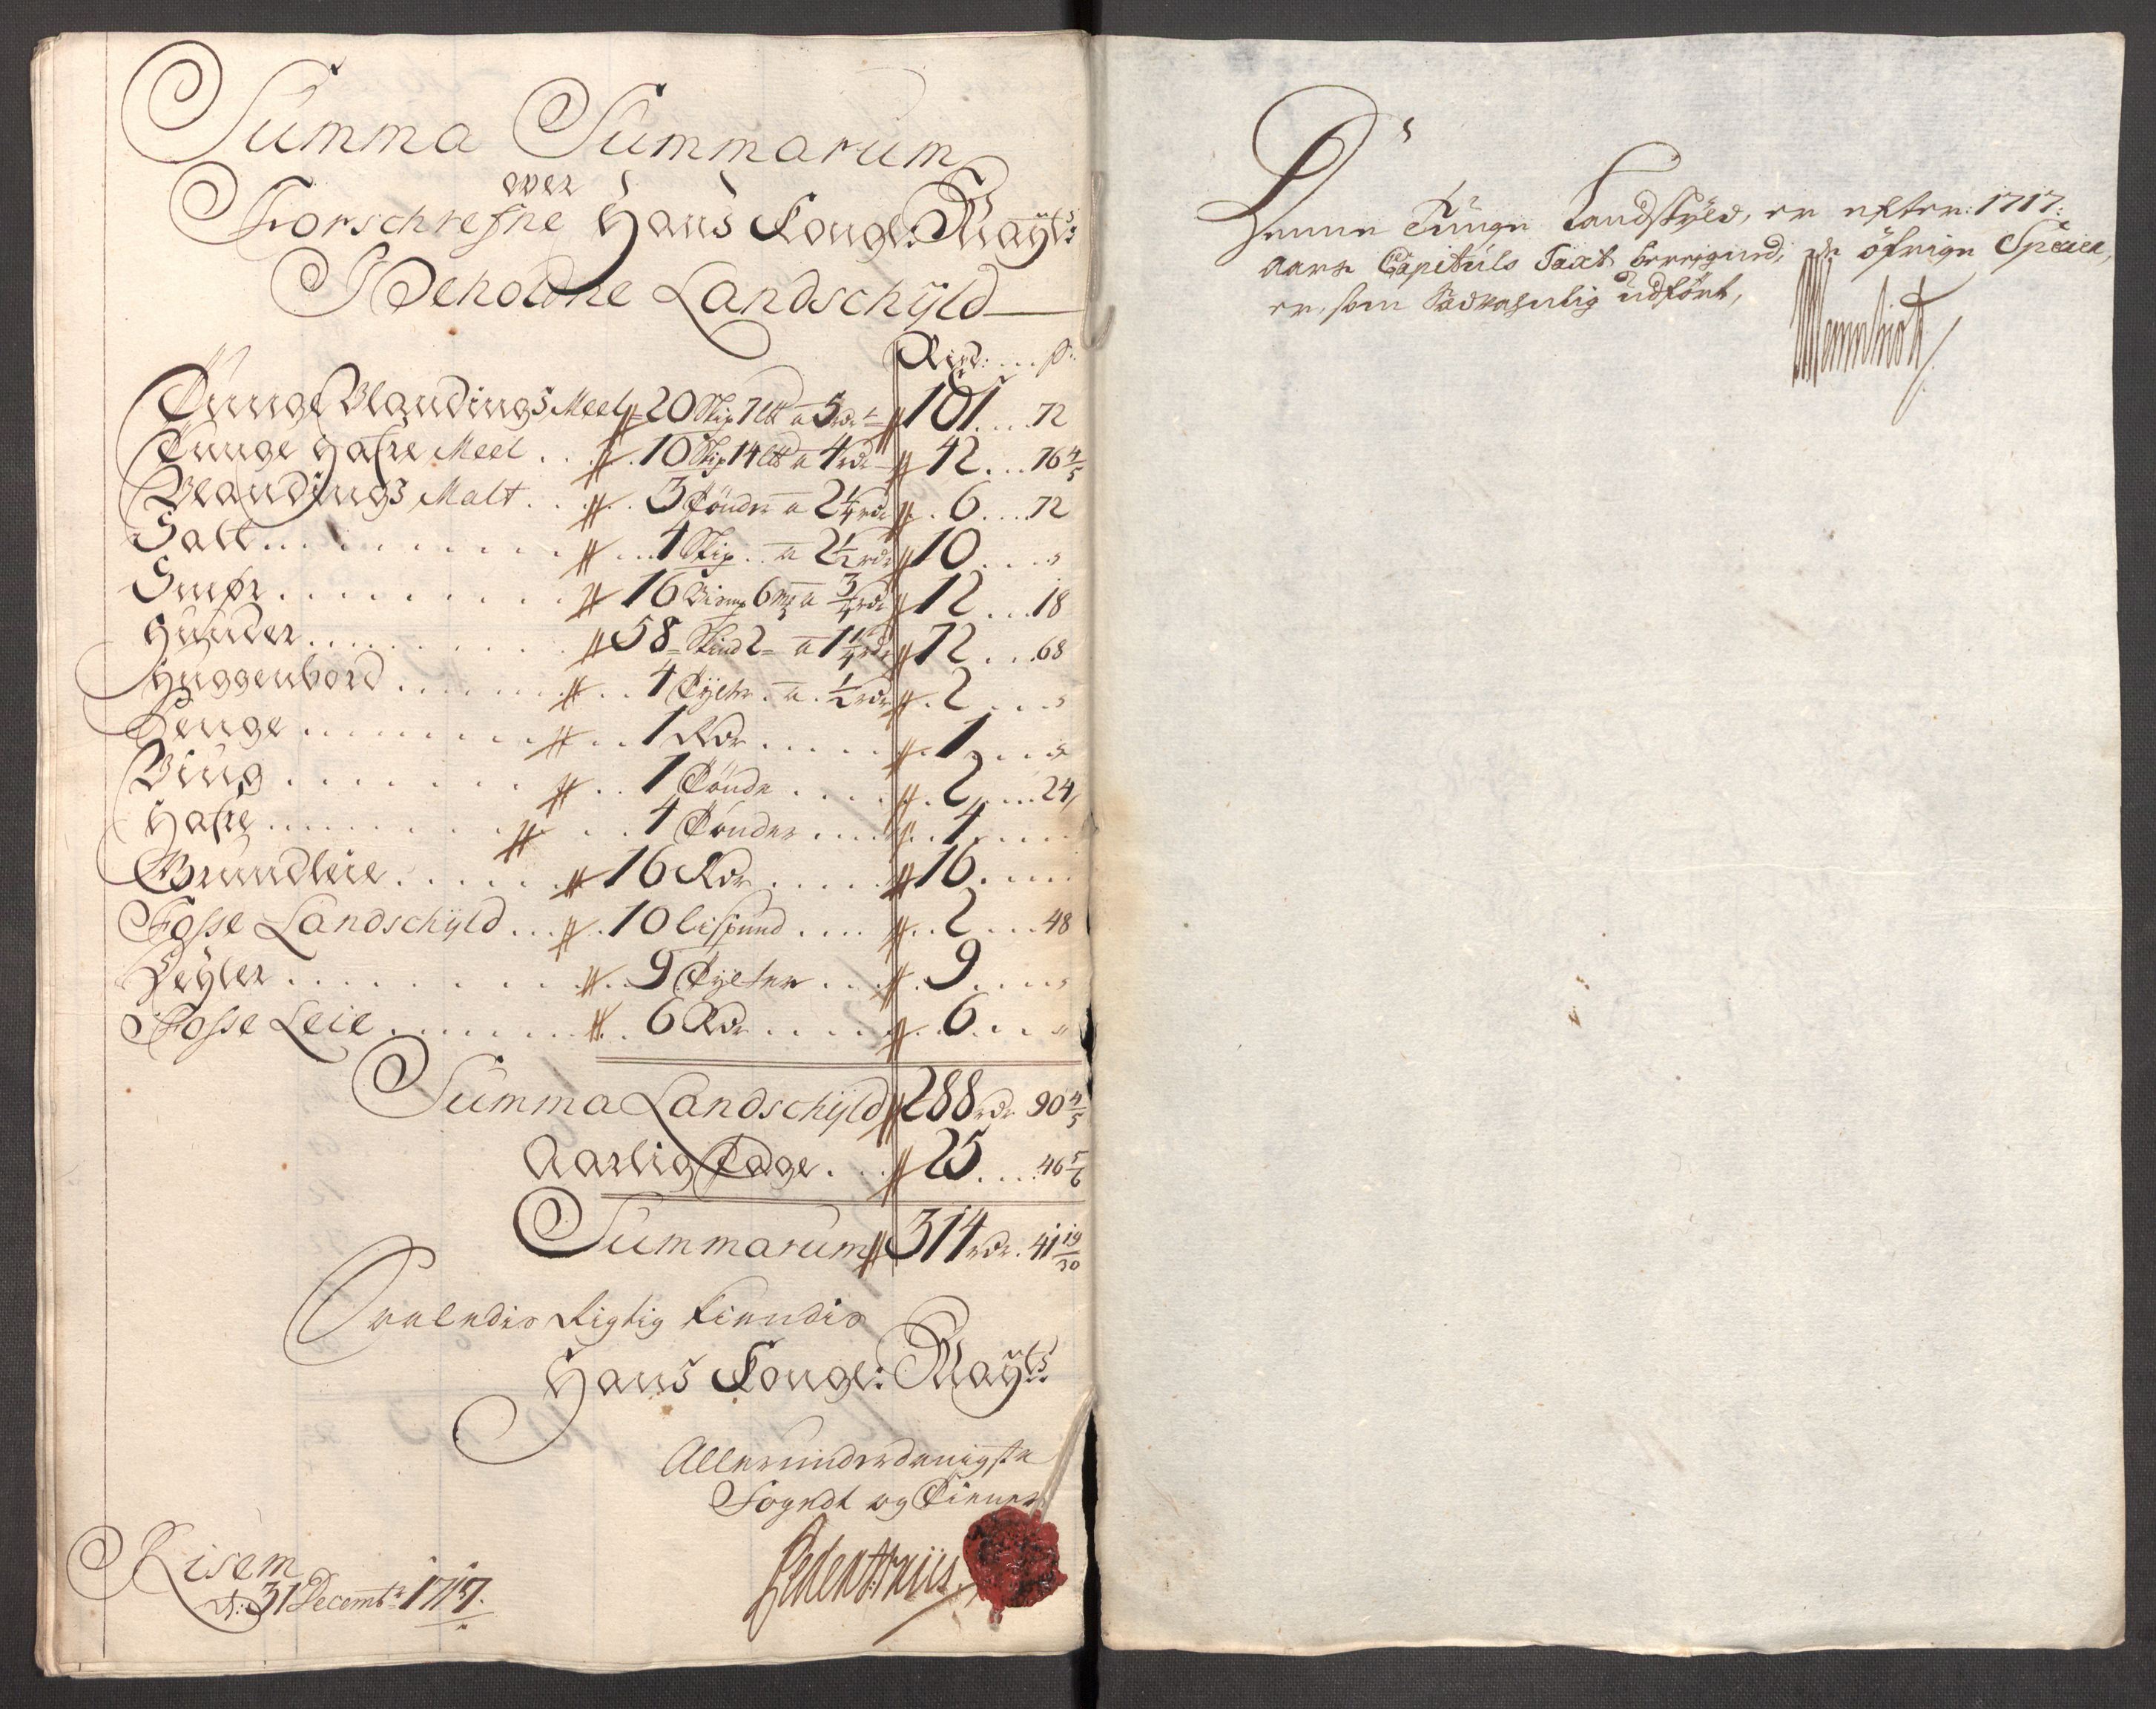 Summa Summarum
over
Forschrefne Hans Konge: Mayts:
Beholdne Landschÿld
Rixd: ... s:
Tunge Blandings Meel 20 Skip 7 Ltt a 5 rdr 101 ... 72
Tunge Hafre Meel ... 10 Skip 14 Ltt a 4 rdr 42 ... 76 4/5
Blandings Malt ... 3 Tønder a 2 1/4 rdr 6 ... 72
Salt ... 4 Skip a 2 1/2 rdr 10 ... "
Smør ... 16 Bismp 6 mk a 3/4 rdr 12 ... 18
Huuder ... 58 Skind 2 a 1 1/4 rdr 72 ... 68
Huggenbord ... 4 Tÿlter a 1/2 rdr 2 ... "
Penge ... 1 Rdr ... 1 ... "
Biug ... 1 Tønde ... 2 ... 24
Hafre ... 4 Tønder ... 4 ...
Grundleie ... 16 Rdr ... 16 ...
Fosse Landschÿld ... 10 Lispund ... 2 ... 48
Deÿler ... 9 Tÿlter ... 9 ... "
Fosse Leie ... 6 Rdr ... 6 ... "
Summa Landschÿld 288 rdr 90 4/5
Aarlig Tage ... 25 ... 46 5/6
Summarum 314 rdr. 41 19/30
Rigtig
Hans Konge: Mayts:
Allerunderdanigste
Fogedt og Tiener
Risem
d: 31 Decembr 1717.
Denne Tunge Landskÿld, er efter: 1717:
aars Capituls Taxt beregned, de øfrige Specier,
er, som Sædvahnlig udført,